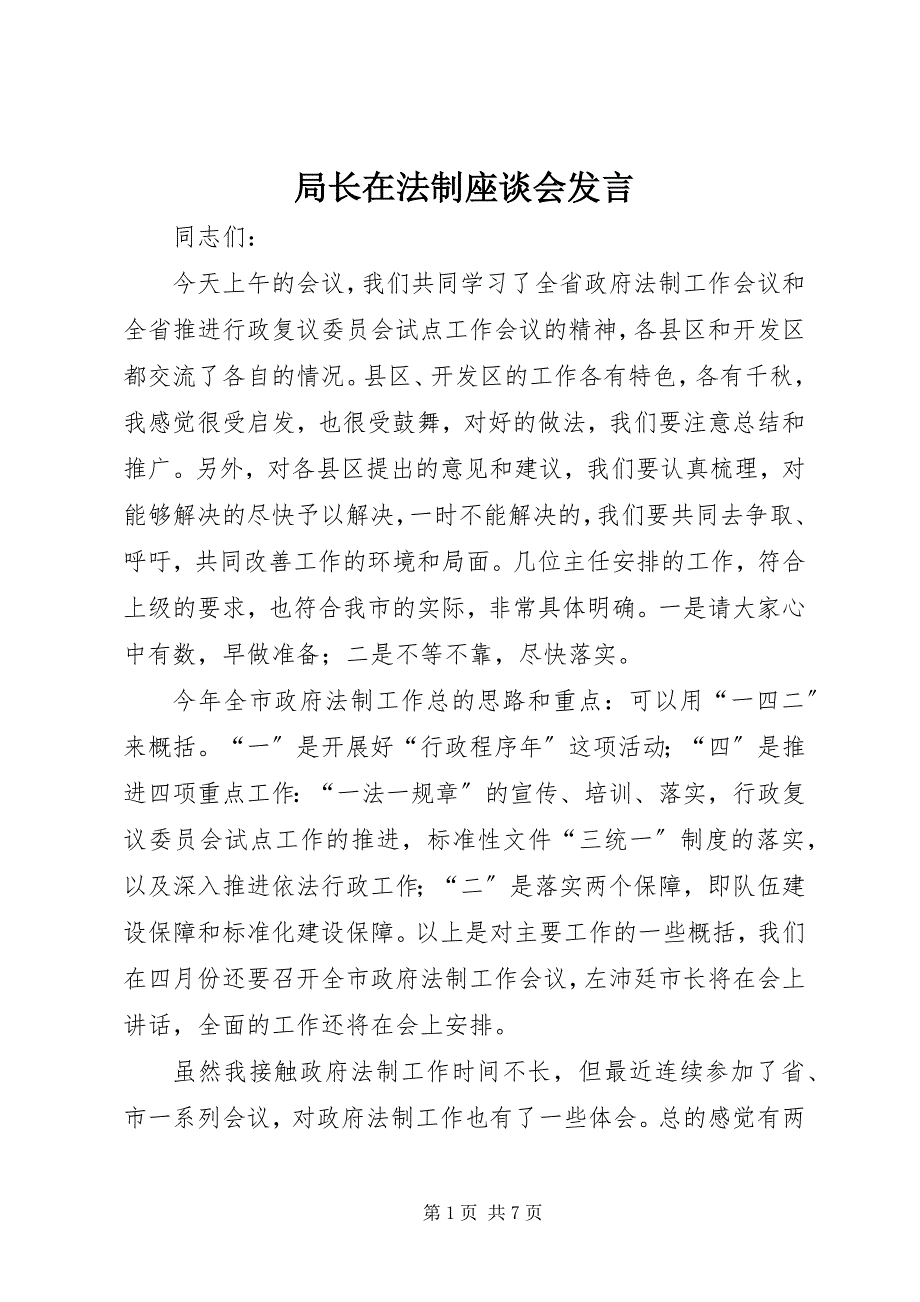 局长在法制座谈会发言
同志们：
今天上午的会议，我们共同学习了全省政府法制工作会议和
全省推进行政复议委员会试点工作会议的精神，各县区和开发区
都交流了各自的情况。县区、开发区的工作各有特色，各有千秋，
我感觉很受启发，也很受鼓舞，对好的做法，我们要注意总结和
推广。另外，对各县区提出的意见和建议，我们要认真梳理，对
能够解决的尽快予以解决，一时不能解决的，我们要共同去争取、
呼吁，共同改善工作的环境和局面。几位主任安排的工作，符合
上级的要求，也符合我市的实际，非常具体明确。一是请大家心
中有数，早做准备；二是不等不靠，尽快落实。
今年全市政府法制工作总的思路和重点：可以用“一四二〞
来概括。“一〞是开展好“行政程序年〞这项活动；“四〞是推
进四项重点工作：“一法一规章〞的宣传、培训、落实，行政复
议委员会试点工作的推进，标准性文件“三统一〞制度的落实，
以及深入推进依法行政工作；“二〞是落实两个保障，即队伍建
设保障和标准化建设保障。以上是对主要工作的一些概括，我们
在四月份还要召开全市政府法制工作会议，左沛廷市长将在会上
讲话，全面的工作还将在会上安排。
虽然我接触政府法制工作时间不长，但最近连续参加了省、
市一系列会议，对政府法制工作也有了一些体会。总的感觉有两
第 1 页 共 7 页